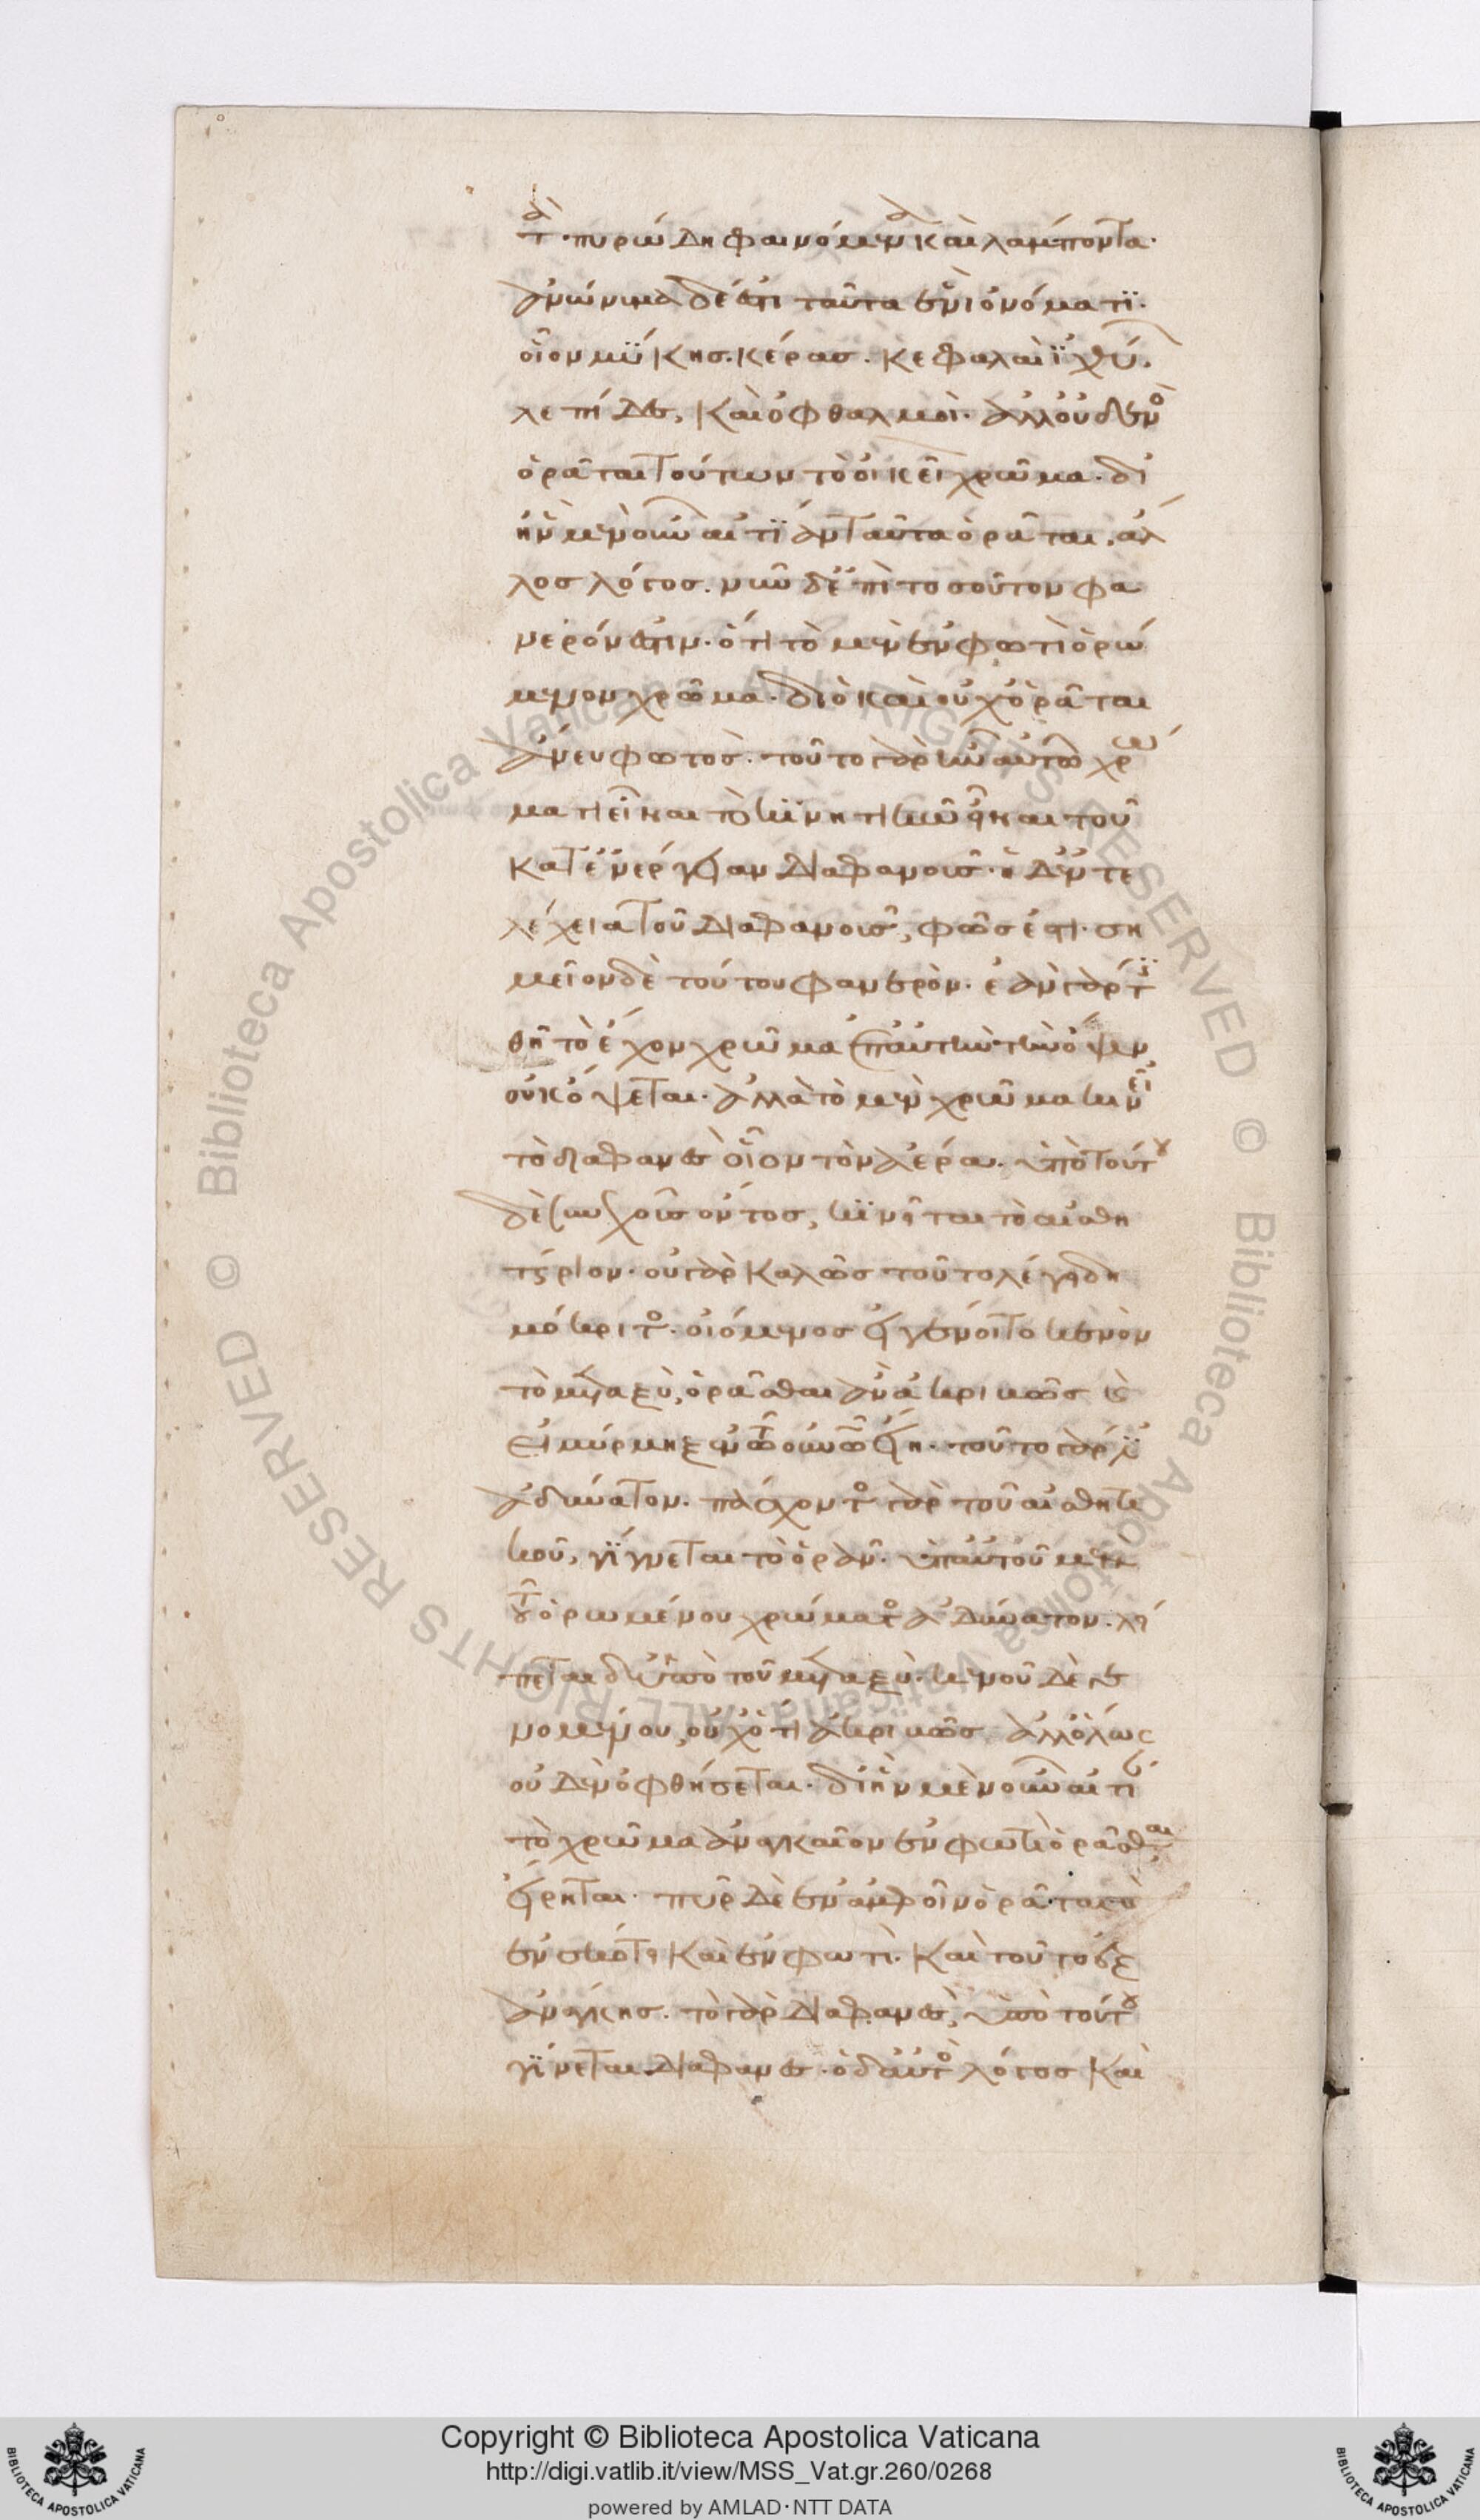 τὰ πυρώδη φαινόμενα καὶ λάμποντα·
ἀνώνυμα δέ ἐστι ταῦτα ἑνὶ ὀνόματι·
οἷον μύκης. κέρας. κεφαλαὶ ἰχθύ.
λεπίδες, καὶ ὀφθαλμοί. ἀλλ' οὐδενὸς
ὁρᾶται τούτων τὸ οἰκεῖον χρῶμα. δι'
ἣν μὲν οὖν αἰτίαν ταῦτα ὁρᾶται, ἄλ
λος λόγος. νῦν δ' ἐπὶ τοσοῦτον φα
νερόν ἐστιν. ὅτι τὸ μὲν ἐν φωτὶ ὁρώ
μενον χρῶμα. διὸ καὶ οὐχ ὁρᾶται
ἄνευ φωτός. τοῦτο γὰρ ἦν αὐτῷ χρώ
ματι εἶναι τὸ κινητικῷ εἶναι τοῦ
κατ' ἐνέργειαν διαφανοῦς. ἡ δ' ἐντε
λέχεια τοῦ διαφανοῦς, φῶς ἐστι. ση
μεῖον δὲ τούτου φανερόν. ἐὰν γάρ τις
θῇ τὸ ἔχον χρῶμα ἐπ' αὐτὴν τὴν ὄψιν
οὐκ ὄψεται. ἀλλὰ τὸ μὲν χρῶμα κινεῖ
τὸ διαφανὲς οἷον τὸν ἀέρα. ὑπὸ τούτου
δὲ συνεχοῦς ὄντος, κινεῖται τὸ αἰσθη
τήριον. οὐ γὰρ καλῶς τοῦτο λέγει δη
μόκριτος. οἰόμενος εἰ γένοιτο κενὸν
τὸ μεταξὺ, ὁρᾶσθαι ἂν ἀκριβῶς καὶ
εἰ μύρμηξ ἐν τῷ οὐρανῷ εἴη. τοῦτο γάρ ἐστιν
ἀδύνατον. πάσχοντος γὰρ τοῦ αἰσθητι
κοῦ, γίγνεται τὸ ὁρᾶν. ὑπ' αὐτοῦ μὲν
τοῦ ὁρωμένου χρώματος ἀδύνατον. λεί
πεται δὲ ὑπὸ τοῦ μεταξύ. κενοῦ δὲ γε
νομένου, οὐχ ὅτι ἀκριβῶς ἀλλ' ὅλως
οὐδὲν ὀφθήσεται. δι' ἣν μὲν οὖν αἰτίαν
τὸ χρῶμα ἀναγκαῖον ἐν φωτὶ ὁρᾶσθαι
εἴρηται. πῦρ δὲ ἐν ἀμφοῖν ὁρᾶται καὶ
ἐν σκότει καὶ ἐν φωτί. καὶ τοῦτο ἐξ
ἀνάγκης. τὸ γὰρ διαφανὲς, ὑπὸ τούτου
γίνεται διαφανές. ὁ δ' αὐτὸς λόγος καὶ
Copyright © Biblioteca Apostolica Vaticana
http://digi.vatlib.it/view/MSS_Vat.gr.260/0268
powered by AMLAD·NTT DATA